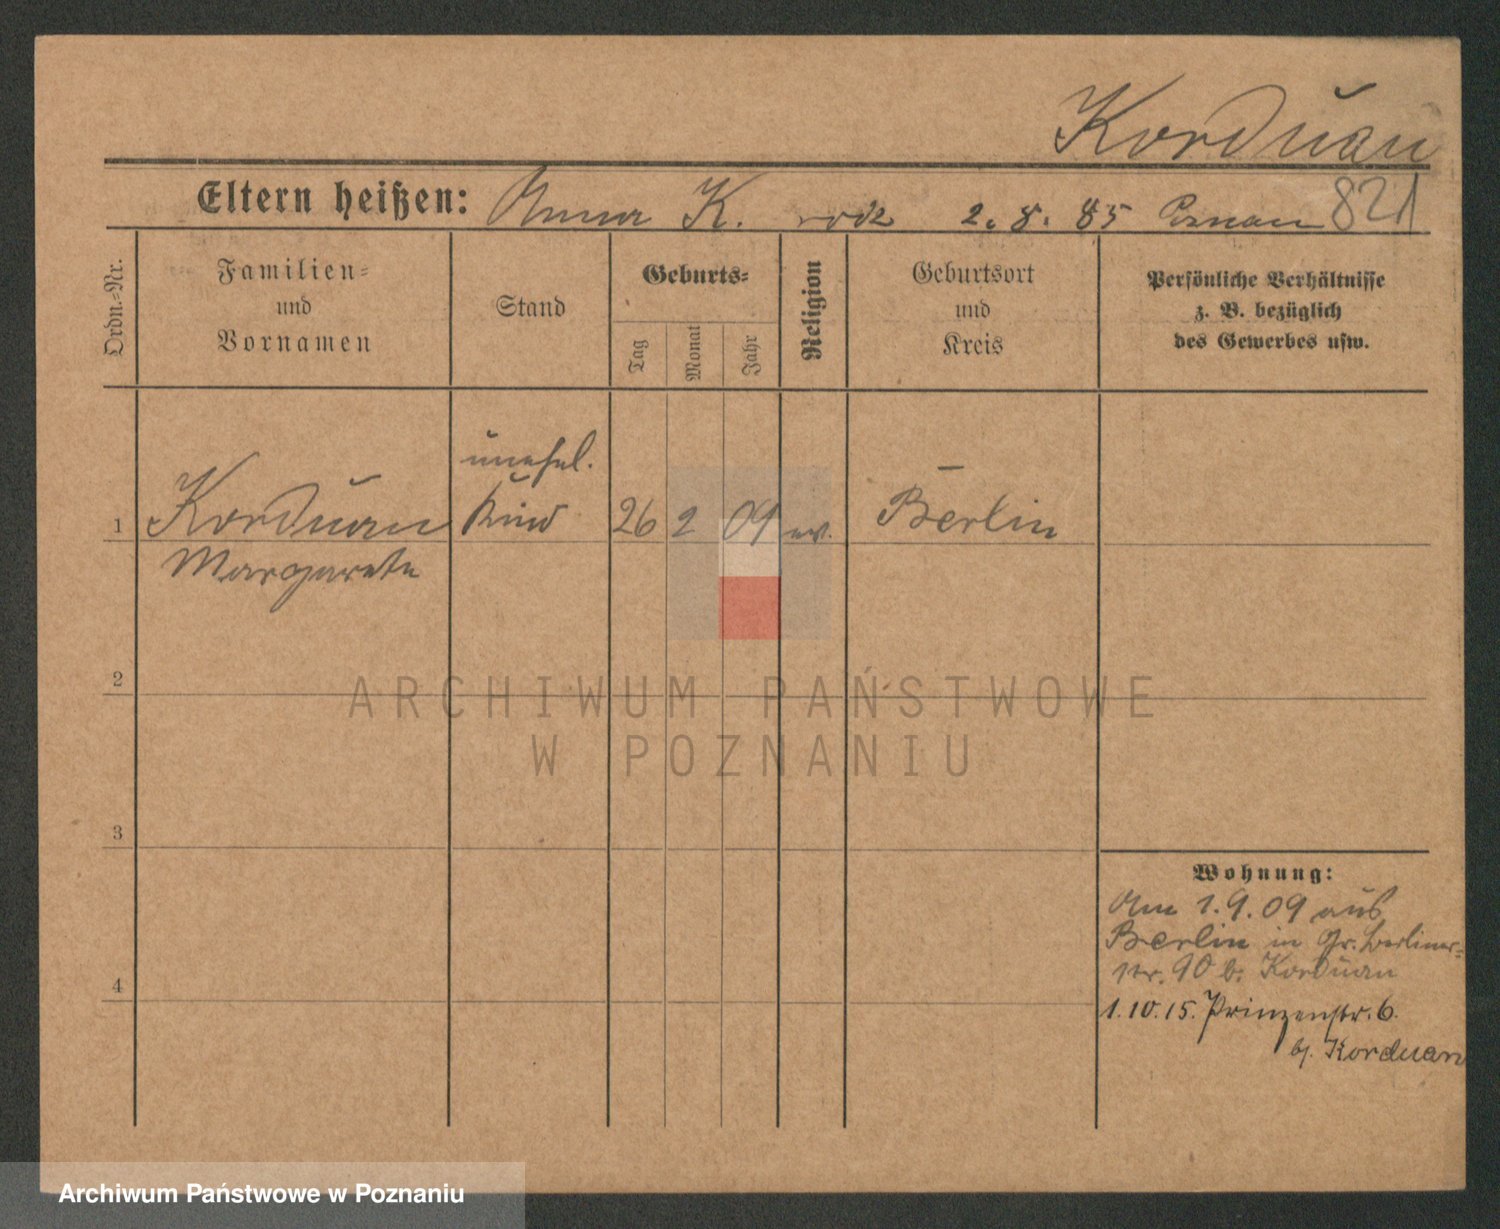 Korduan
Eltern heißen: Anna K. rodz 2. 8. 85 Poznan 821
Ordn.-Nr.
Familien-
und
Vornamen
Stand
Geburts-
Tag
Monat
Jahr
Religion
Geburtsort
und
Kreis
Persönliche Verhältnisse
z. B. bezüglich
des Gewerbes usw.
unehel.
1 Korduan Kind 26 2 09 ev. Berlin
Margarete
2
3
4
Wohnung:
Am 1.9.09 aus
Berlin in Gr. Berliner-
str. 90 b. Korduan
1.10.15. Prinzenstr. 6.
bj. Korduan
ARCHIWUM PAŃSTWOWE
W POZNANIU
Archiwum Państwowe w Poznaniu